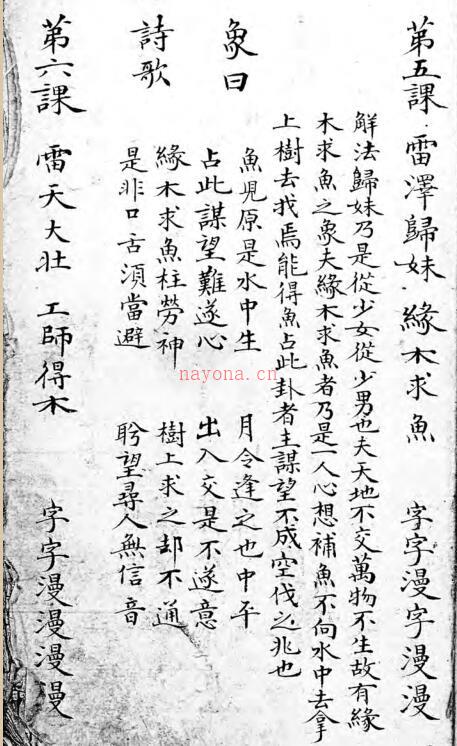 第五課 雷澤歸妹 緣木求魚 字字漫字漫漫
解法歸妹乃是從少女從少男也夫天地不交萬物不生故有緣
木求魚之象夫緣木求魚者乃是一人心想補魚不向水中去拿
上樹去找焉能得魚占此卦者主謀望不成空伐之兆也
象曰 魚兒原是水中生 月令逢之也中平
占此謀望難遂心 出入交是不遂意
詩歌 緣木求魚枉勞神 樹上求之却不通
是非口舌須當避 盼望尋人無信音
第六課 雷天大壯 工師得木 字字漫漫漫漫
nayona.cn